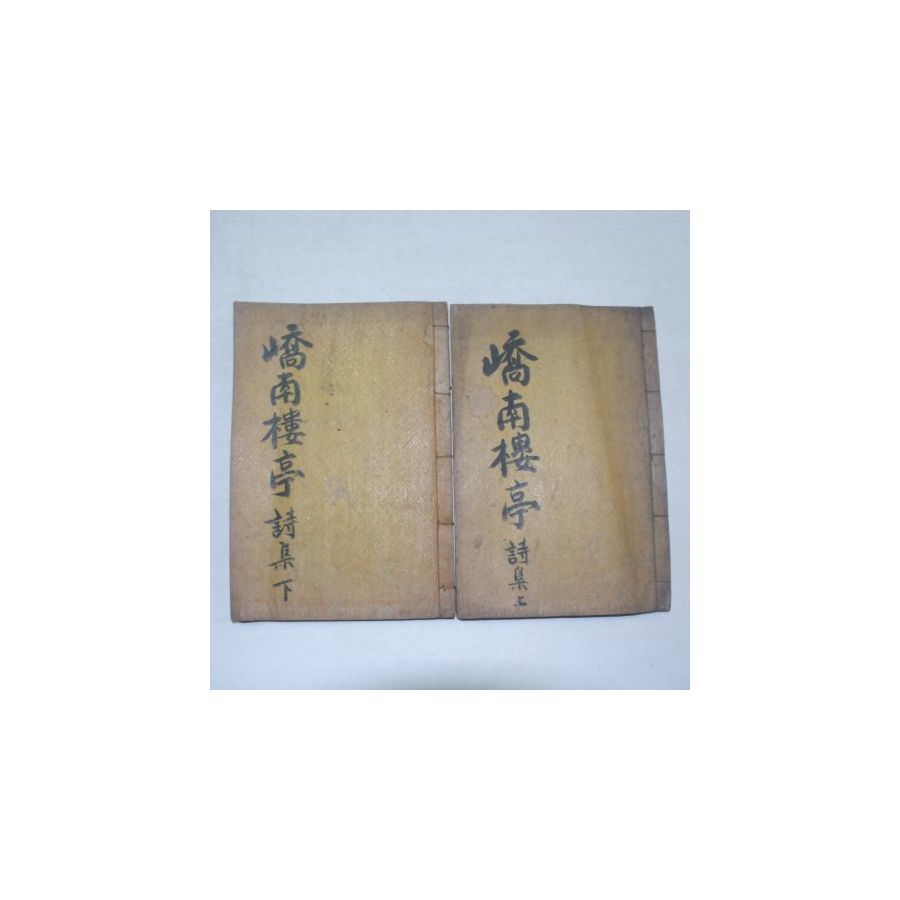 嶠南樓亭詩集上
嶠南樓亭詩集下